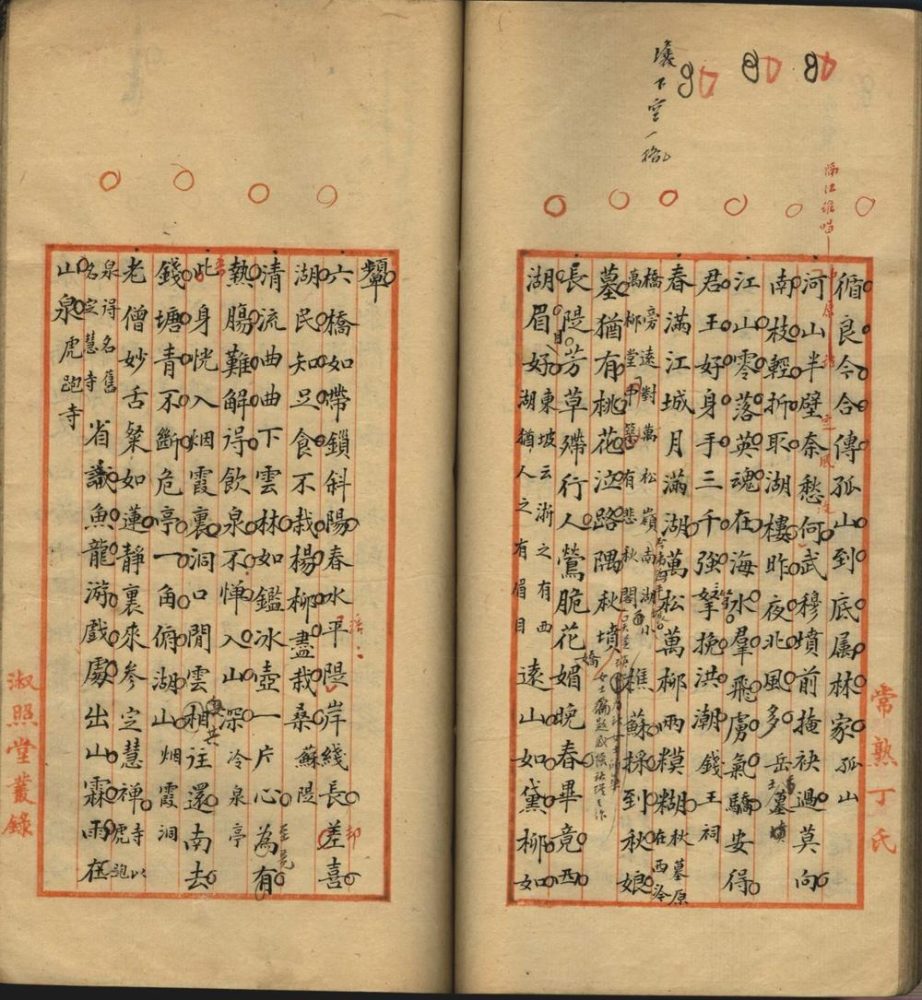 壙下空一格
常熟丁氏
循良今合傳孤山到底属林家孤山
河山半壁奈愁何武穆墳前掩袂過莫向
南枝輕折取湖樓昨夜北風多岳墓
江山零落英魂在海水羣飛虜氣驕安得
君王好身手三千強弩挽洪潮錢王祠
春滿江城月滿湖萬松萬柳兩糢糊秋墓原在西泠
橋旁遠對萬松嶺南湖小萬柳堂有悲秋閣樵蘇採到秋娘
墓猶有桃花泣路隅秋墳
長隄芳草殢行人鶯脆花嬌媚晚春畢竟西
湖眉目好東坡云浙之有西湖猶人之有眉目遠山如黛柳如
顰
六橋如帶鎖斜陽春水平隄岸綫長差喜
湖民知足食不栽楊柳盡栽桑蘇隄
清流曲曲下雲林如鑑冰壺一片心為有
熱腸難解得飲泉不憚入山深冷泉亭
此身恍入烟霞裏洞口閒雲相往還南去
錢塘青不斷危亭一角俯湖山烟霞洞
老僧妙舌粲如蓮靜裏來參定慧禪寺以虎跑
泉得名舊名定慧寺省識魚龍游戲處出山霖雨在
山泉虎跑寺
淑照堂叢錄